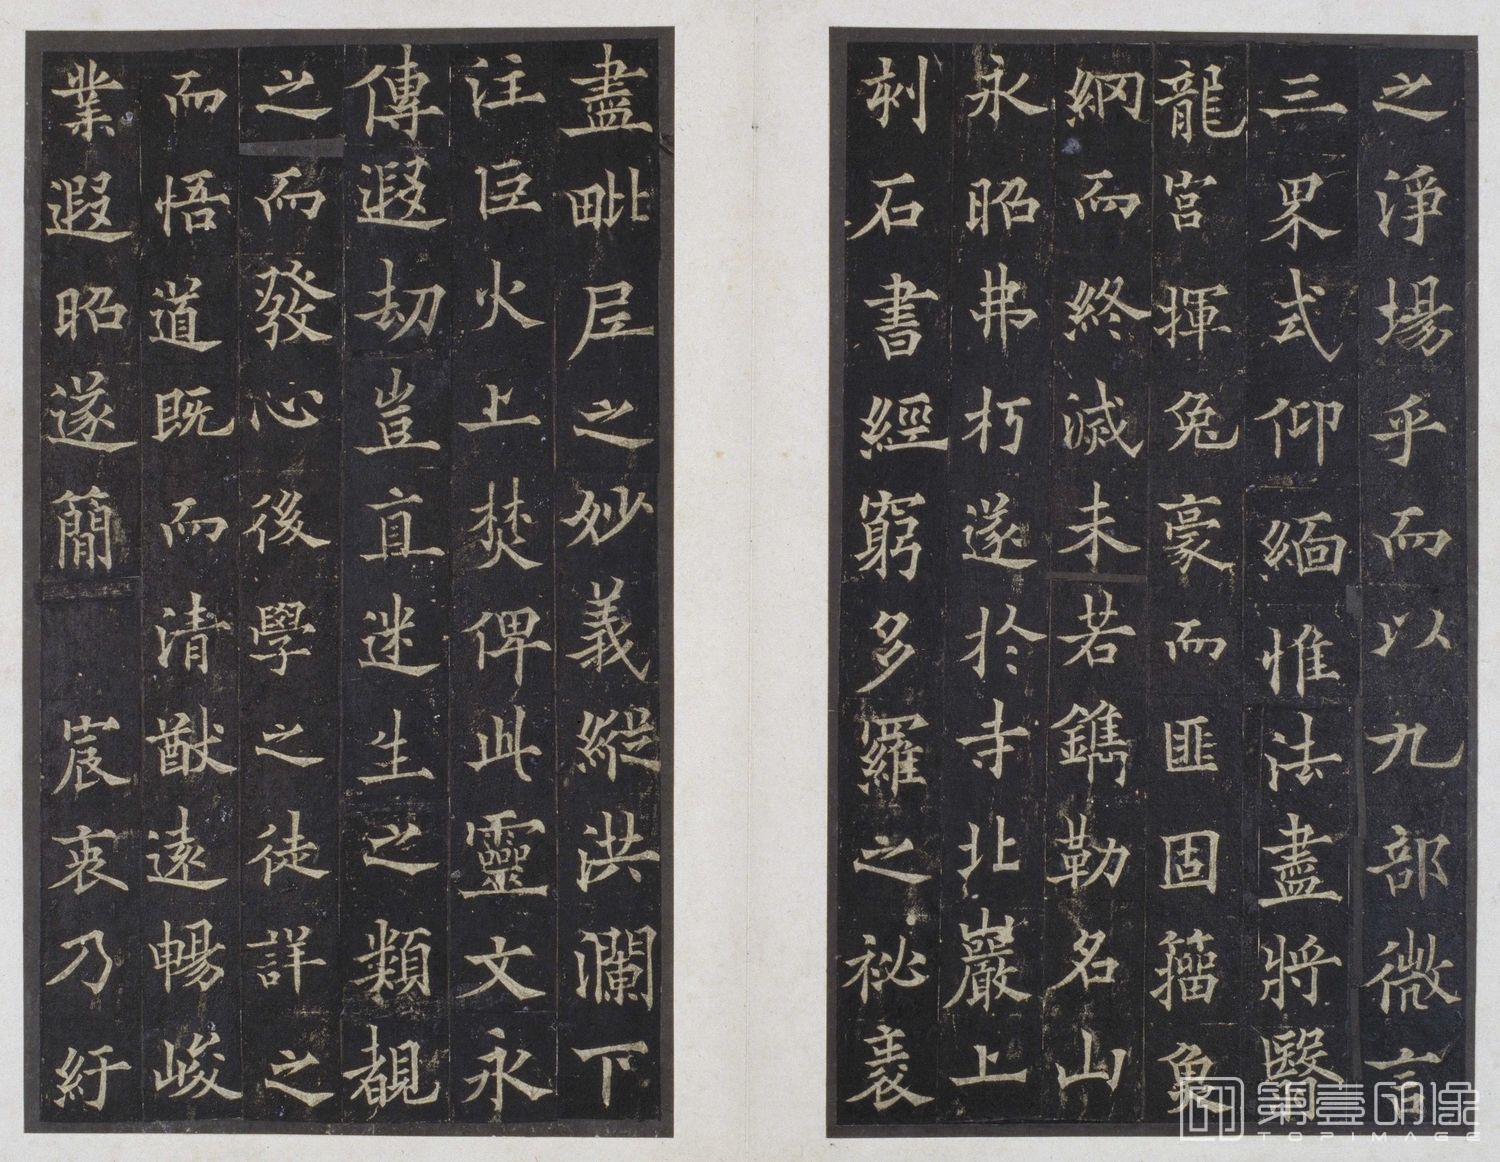 之淨場乎而以九部微言
三界式仰緬惟法盡將翳
龍宮揮兔豪而匪固籀象
綱而終滅未若鐫勒名山
永昭弗朽遂於寺北巖上
刺石書經窮多羅之祕裹
盡毗尼之妙義縱洪瀾下
注巨火上焚俾此靈文永
傳遐劫豈直迷生之類覩
之而發心後學之徒詳之
而悟道既而清猷遠暢峻
業遐昭遂簡
宸衷乃紆
第壹印象
TOPIMAGE